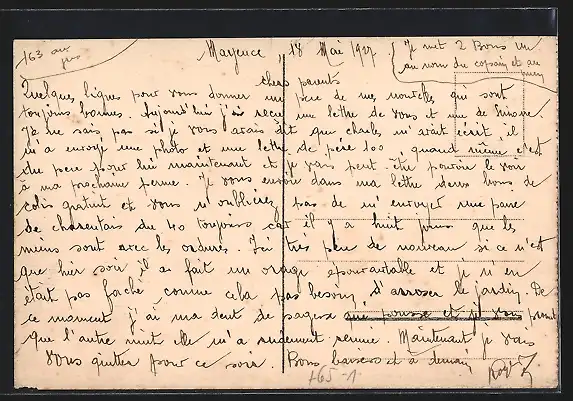 163 au jus
Mayence, 18 Mai 1927. Je met 2 Bons un
au nom du copain et au mien
chers parents
Quelques lignes pour vous donner un peu de mes nouvelles qui sont
toujours bonnes. Aujourd'hui j'ai reçu une lettre de vous et une de Simone.
Je ne sais pas si je vous avais dit que charles m'avait écrit, il
m'a envoyé une photo et une lettre de père 100, quand même c'est
du pere pour lui maintenant et je vais peut-être pouvoir le voir
à ma prochaine perme. Je vous envoie dans ma lettre deux bons de
colis gratuit et vous n'oublierez pas de m'envoyer une paire
de charentais du 40 toujours car il y a huit jours que les
miens sont avec les ordures. J'ai très peu de nouveau si ce n'est
que hier soir il a fait un orage épouvantable et je n'en
était pas faché comme cela pas besoin d'arroser le jardin. De
ce moment j'ai ma dent de sagesse qui pousse et je vous promet
que l'autre nuit elle m'a rudement. Maintenant je vais
vous quitter pour ce soir. Bons baisers et à demain
165-1